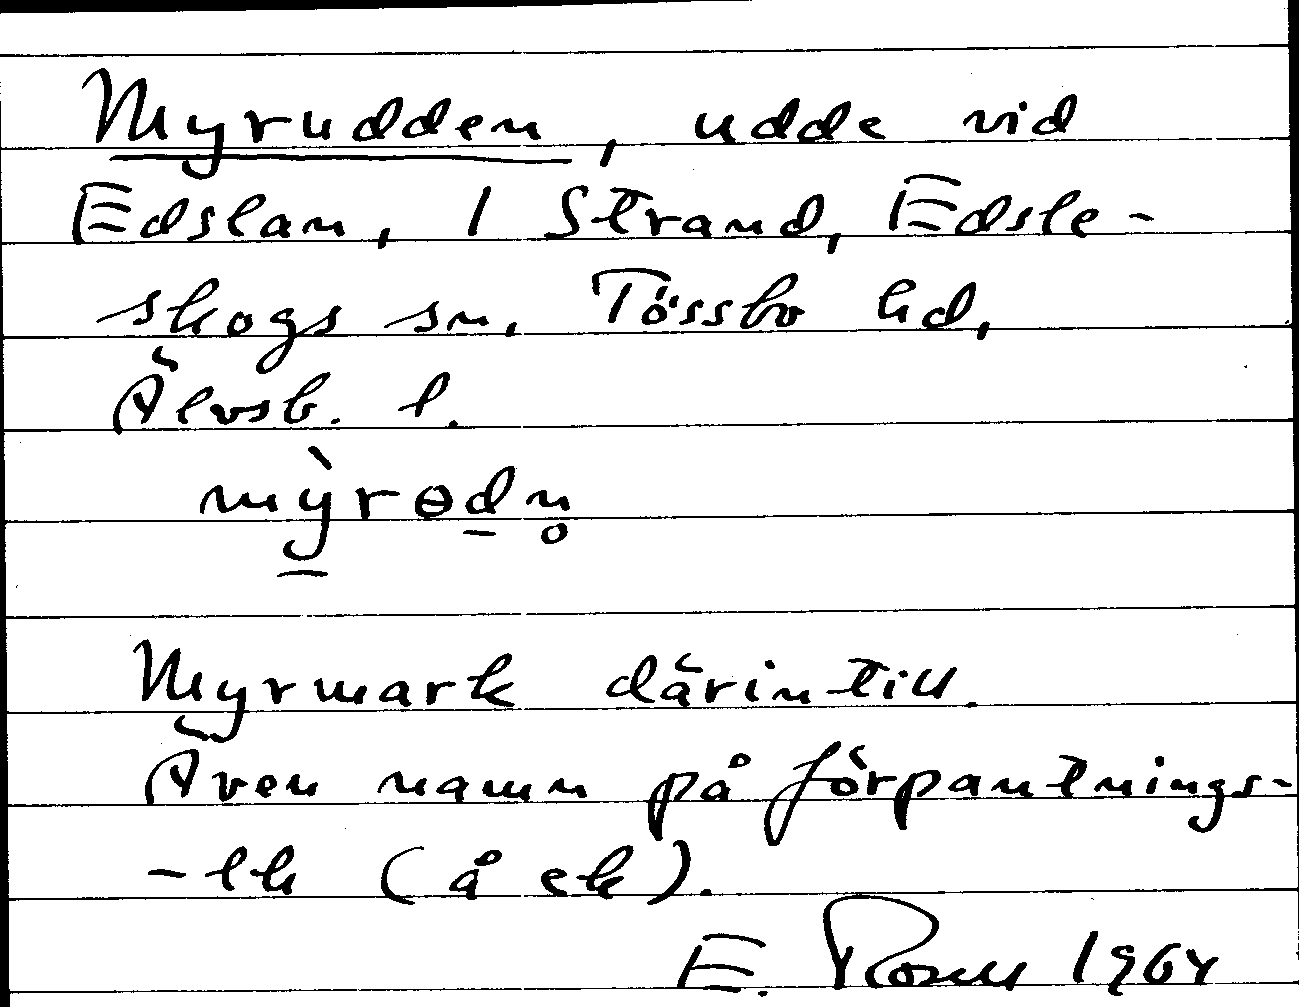 Myrudden, udde vid
Edslan, 1 Strand, Edsle-
skogs sn, Tössbo hd,
Älvsb. l.
mỳrɵdn̥
Myrmark därintill.
Även namn på förpantnings-
-lh (å ek).
E. Rosell 1964